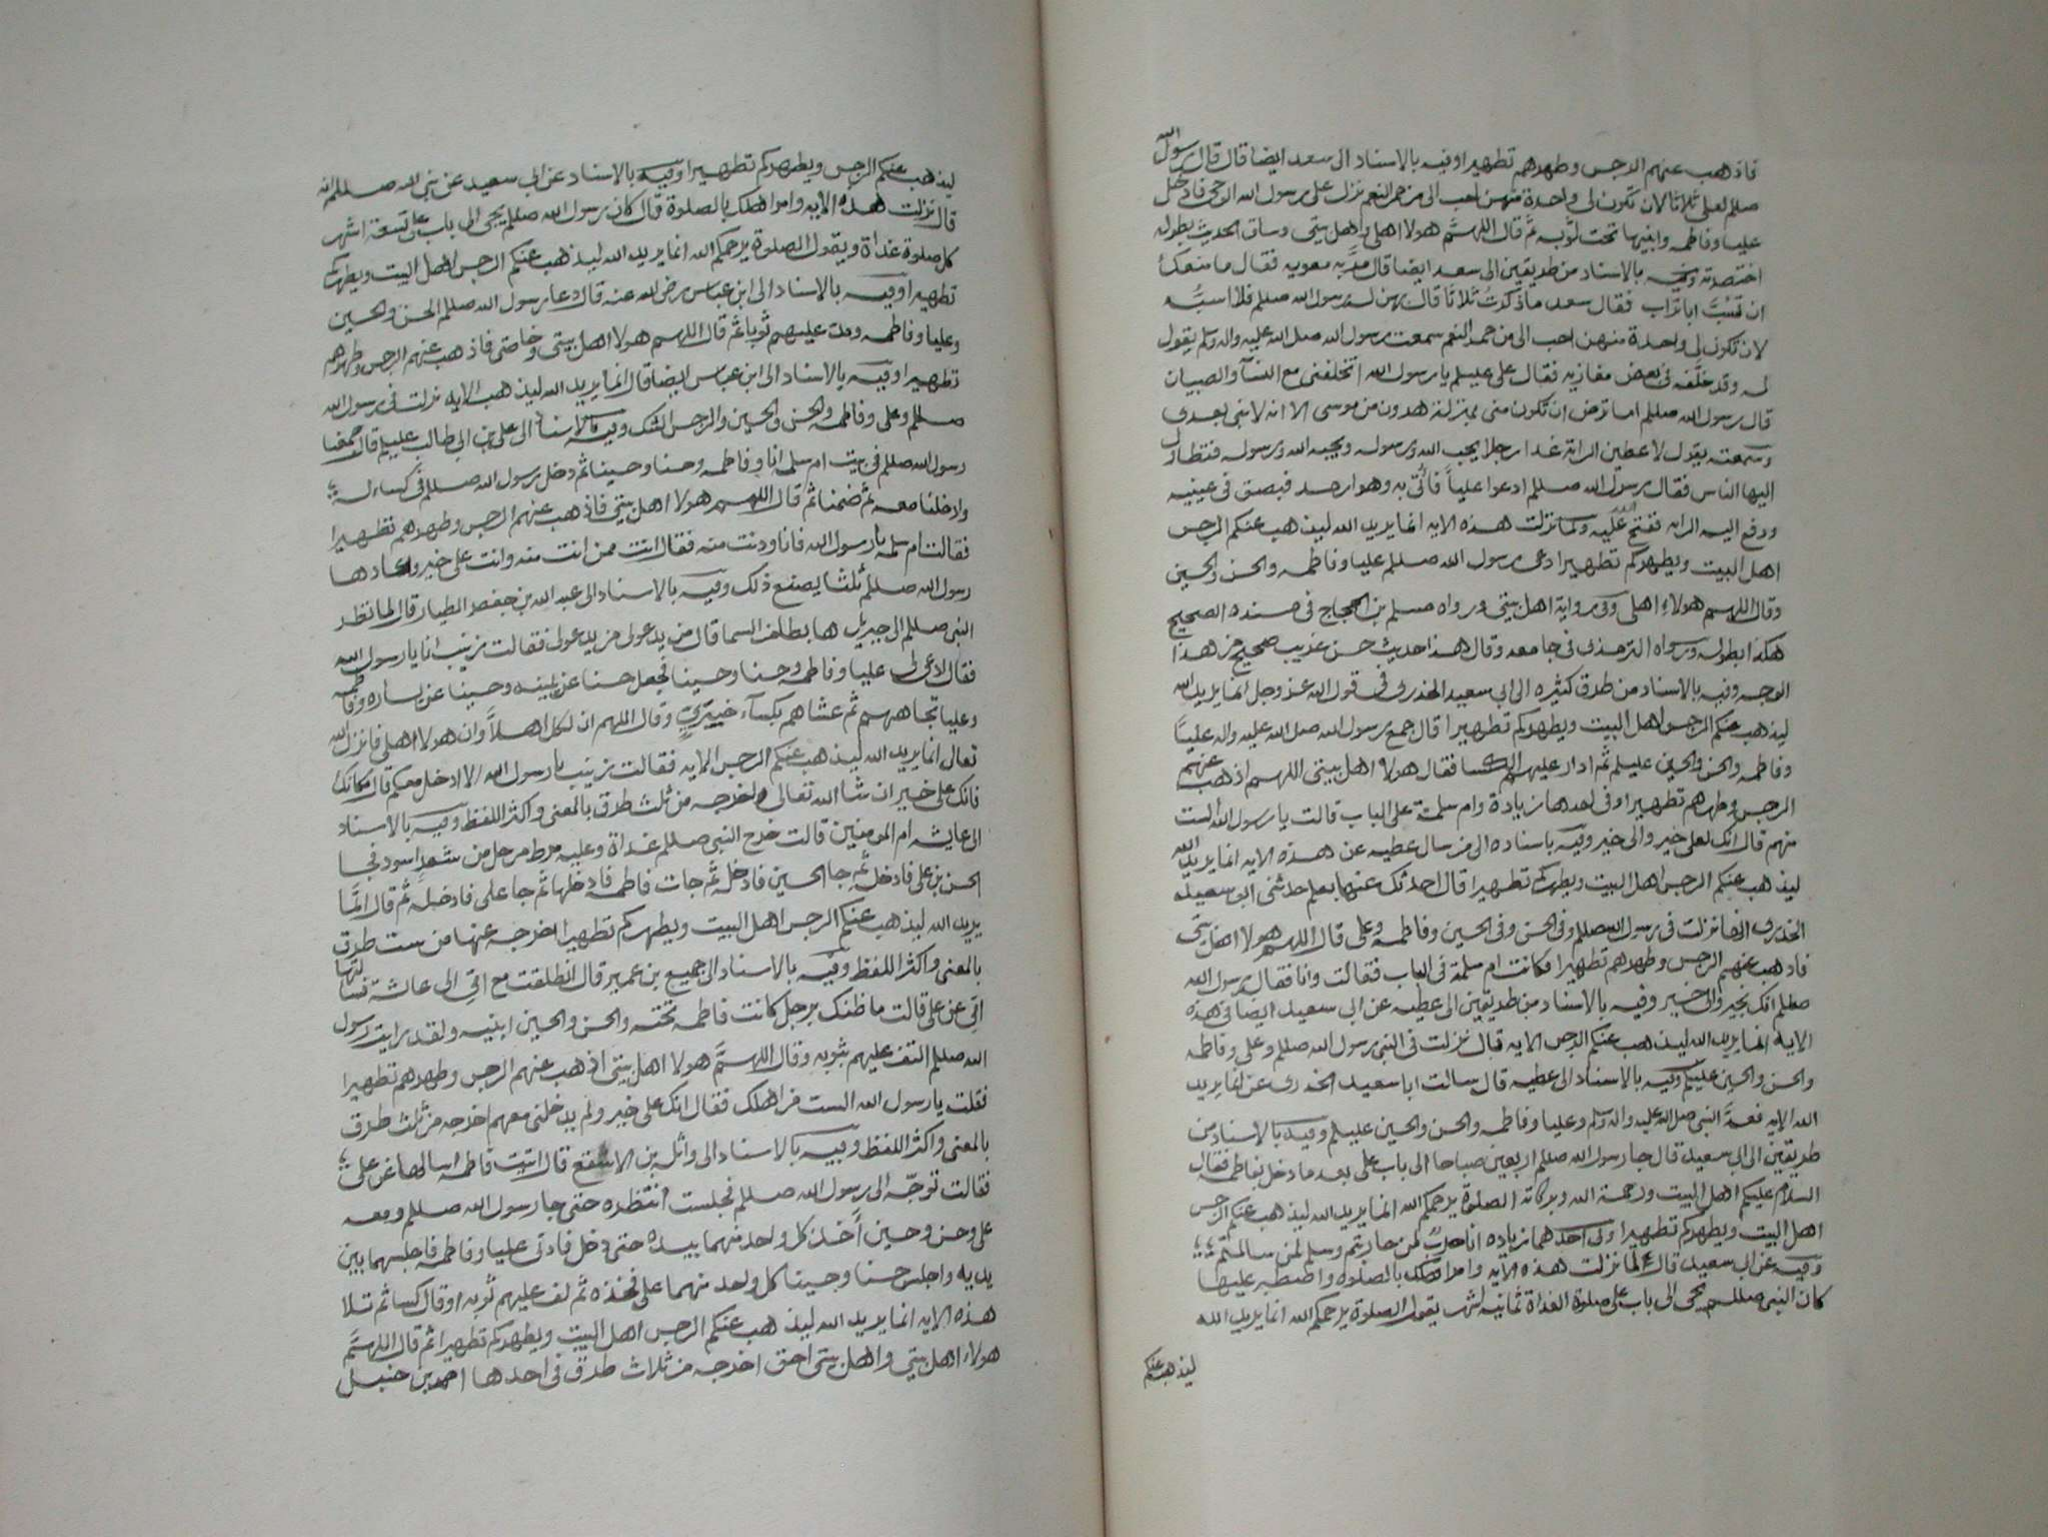 فاذهب عنهم الرجس وطهرهم تطهيرا وفيه بالاسناد الى سعد ايضا قال قال رسول الله
صللم لعلى ثلاثا لان تكون لى واحدة منهن احب الى من حمر النعم نزل على رسول الله الوحى فادخل
عليا وفاطمه وابنيها تحت ثوبه ثم قال اللهم هولا اهلى واهل بيتى وساق الحديث بطوله
اختصرته وفيه بالاسناد من طريقين الى سعد ايضا قال معويه فقال ما منعك
ان تسب ابا تراب فقال سعد ما ذكرت ثلاثا قالهن له رسول الله صللم فلا اسبه
لان تكون لى واحدة منهن احب الى من حمر النعم سمعت رسول الله صلى الله عليه واله وسلم يقول
له وقد خلفه فى بعض مغازيه فقال على عليسلم يا رسول الله اتخلفنى مع النسآ والصبيان
قال رسول الله صللم اما ترض ان تكون منى بمنزلة هرون من موسى الا انه لا نبى بعدى
وسمعته يقول لاعطين الراية غدا رجلا يحب الله ورسوله ويحبه الله ورسوله فتطاول
اليها الناس فقال رسول الله صللم ادعوا عليا فاتى به وهو ارمد فبصق فى عينيه
ودفع اليه الرايه ففتح الله عليه ولما نزلت هذه الايه انما يريد الله ليذهب عنكم الرجس
اهل البيت ويطهركم تطهيرا دعى رسول الله صللم عليا وفاطمه والحسن والحسين
وقال اللهم هولاء اهلى وفى رواية اهل بيتى ورواه مسلم بن الحجاج فى مسنده الصحيح
هكذا بطوله ورواه الترمذى فى جامعه وقال هذا حديث حسن غريب صحيح من هذا
الوجه وفيه بالاسناد من طرق كثيره الى ابى سعيد الخدرى فى قول الله عز وجل انما يريد الله
ليذهب عنكم الرجس اهل البيت ويطهركم تطهيرا قال جمع رسول الله صلى الله عليه واله عليا
وفاطمه والحسن والحسين عليسلم ثم ادار عليهم الكسا فقال هولا اهل بيتى اللهم اذهب عنهم
الرجس وطهرهم تطهيرا وفى احدها زيادة وام سلمة على الباب قالت يا رسول الله الست
منهم قال انك لعلى خير والى خير وفيه باسناده الى من سال عطيه عن هذه الايه انما يريد الله
ليذهب عنكم الرجس اهل البيت ويطهركم تطهيرا قال احدثك عنها بعلم حدثنى ابو سعيد
الخدرى انها نزلت فى رسول الله صللم وفى الحسن وفى الحسين وفاطمه وعلى قال اللهم هولا اهل بيتى
فاذهب عنهم الرجس وطهرهم تطهيرا فكانت ام سلمة فى الباب فقالت وانا فقال رسول الله
صللم انك بخير والى خير وفيه بالاسناد من طريقين الى عطيه عن ابى سعيد ايضا فى هذه
الايه انما يريد الله ليذهب عنكم الرجس الايه قال نزلت فى النبى رسول الله صللم وعلى وفاطمه
والحسن والحسين عليسلم وفيه بالاسناد الى عطيه قال سالت ابا سعيد الخدرى عن انما يريد
الله الايه فعد النبى صلى الله عليه واله وسلم وعليا وفاطمه والحسن والحسين عليسلم وفيه بالاسناد من
طريقين الى ابى سعيد قال جا رسول الله صللم اربعين صباحا الى باب على بعد ما دخل بفاطمه فقال
السلام عليكم اهل البيت ورحمة الله وبركاته الصلوة يرحمكم الله انما يريد الله ليذهب عنكم الرجس
اهل البيت ويطهركم تطهيرا وفى احدهما زياده انا حرب لمن حاربتم وسلم لمن سالمتم
وفيه عن ابى سعيد قال لما نزلت هذه الايه وامر اهلك بالصلوة واصطبر عليها
كان النبى صللم يجى الى باب على صلوة الغداة ثمانية اشهر يقول الصلوة يرحمكم الله انما يريد الله
ليذهب عنكم
ليذهب عنكم الرجس ويطهركم تطهيرا وفيه بالاسناد عن ابى سعيد عن نبى الله صللم انه
قال نزلت هذه الايه وامر اهلك بالصلوة قال كان رسول الله صللم يجى الى باب على تسعة اشهر
كل صلوة غداة ويقول الصلوة يرحمكم الله انما يريد الله ليذهب عنكم الرجس اهل البيت ويطهركم
تطهيرا وفيه بالاسناد الى ابن عباس رضى الله عنه قال دعا رسول الله صللم الحسن والحسين
وعليا وفاطمه ومد عليهم ثوبا ثم قال اللهم هولا اهل بيتى وخاصتى فاذهب عنهم الرجس وطهرهم
تطهيرا وفيه بالاسناد الى ابن عباس ايضا قال انما يريد الله ليذهب الايه نزلت فى رسول الله
صللم وعلى وفاطمه والحسن والحسين والرجس الشك وفيه بالاسناد الى على بن ابى طالب عليسلم قال جمعنا
رسول الله صللم فى بيت ام سلمه انا وفاطمه وحسنا وحسينا ثم دخل رسول الله صللم فى كساء له
وادخلنا معه ثم ضمنا ثم قال اللهم هولا اهل بيتى فاذهب عنهم الرجس وطهرهم تطهيرا
فقالت ام سلمه يا رسول الله فانا ودنت منه فقال انت ممن انت منه وانت على خير واعادها
رسول الله صللم ثلثا يصنع ذلك وفيه بالاسناد الى عبد الله بن جعفر الطيار قال لما نظر
النبى صللم الى جبريل هابطا من السما قال من يدعو لى من يدعو لى فقالت زينب انا يا رسول الله
فقال ادعى لى عليا وفاطمه وحسنا وحسينا فجعل حسنا عن يمينه وحسينا عن يساره وفاطمه
وعليا تجاههم ثم غشاهم بكسآء خيبرى وقال اللهم ان لكل اهلا وان هولا اهلى فانزل الله
تعالى انما يريد الله ليذهب عنكم الرجس الايه فقالت زينب يا رسول الله الا ادخل معكم قال مكانك
فانك على خير ان شا الله تعالى واخرجه من ثلث طرق بالمعنى واكثر اللفظ وفيه بالاسناد
الى عايشه ام المومنين قالت خرج النبى صللم غداة وعليه مرط مرجل من شعر اسود فجا
الحسن بن على فادخله ثم جا الحسين فادخله ثم جات فاطمه فادخلها ثم جا على فادخله ثم قال انما
يريد الله ليذهب عنكم الرجس اهل البيت ويطهركم تطهيرا اخرجه عنها من ست طرق
بالمعنى واكثر اللفظ وفيه بالاسناد الى جميع بن عمير قال انطلقت مع امى الى عائشة فسالتها
امى عن على قالت ما ظنك برجل كانت فاطمه تحته والحسن والحسين ابنيه ولقد رايت رسول
الله صللم التف عليهم بثوبه وقال اللهم هولا اهل بيتى اذهب عنهم الرجس وطهرهم تطهيرا
فقلت يا رسول الله الست من اهلك فقال انك على خير ولم يدخلنى معهم اخرجه من ثلث طرق
بالمعنى واكثر اللفظ وفيه بالاسناد الى واثلة بن الاسقع قال اتيت فاطمه اسالها عن على
فقالت توجه الى رسول الله صللم فجلست انتظره حتى جا رسول الله صللم ومعه
على وحسن وحسين أخذ كل واحد منهما بيده حتى دخل فادنى عليا وفاطمه فاجلسهما بين
يديه واجلس حسنا وحسينا كل واحد منهما على فخذه ثم لف عليهم ثوبه او قال كسا ثم تلا
هذه الايه انما يريد الله ليذهب عنكم الرجس اهل البيت ويطهركم تطهيرا ثم قال اللهم
هولاء اهل بيتي واهل بيتى احق اخرجه من ثلاث طرق فى احدها احمد بن حنبل